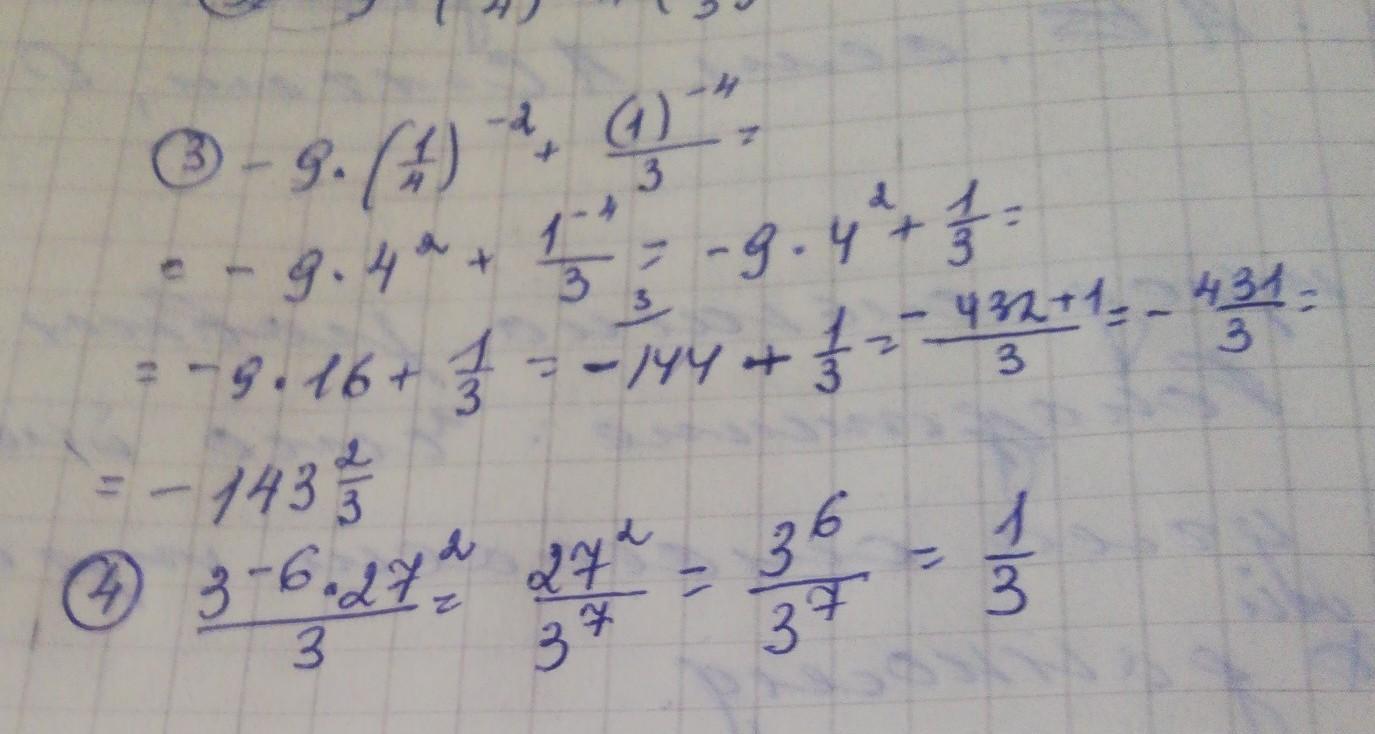 ③ - 9 · (1/4)^-2 + (1)^-4/3 =
= - 9 · 4^2 + 1^-4/3 = - 9 · 4^2 + 1/3 =
= - 9 · 16 + 1/3 = - 144 + 1/3 = - 432+1/3 = - 431/3 =
= - 143 2/3
④ 3^-6 · 27^2/3 = 27^2/3^7 = 3^6/3^7 = 1/3